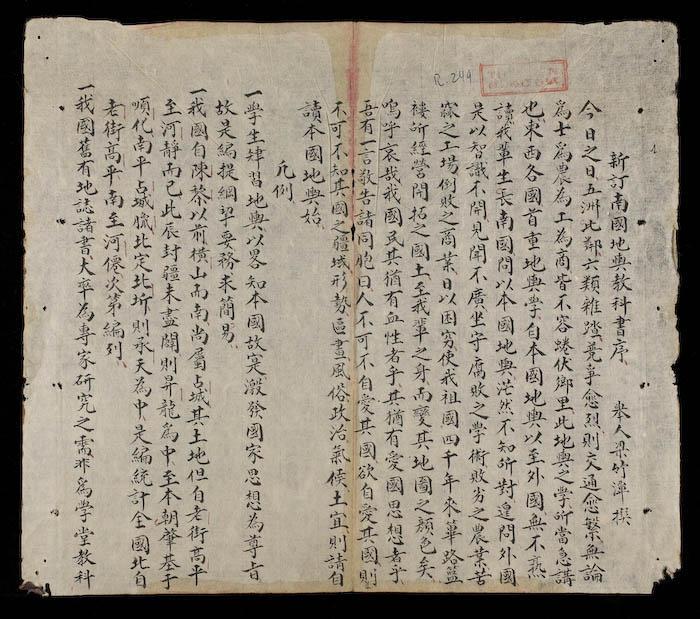 新訂南國地輿教科書序
举人梁竹潭撰
今日之日五洲比鄰六類雜踏竞争愈烈則交通愈繁無論
爲士爲農爲工爲商皆不容踡伏鄉里此地輿之學所當急講
也東西各國首重地輿學自本國地輿以至外國無不熟
讀我輩生長南國問以本國地輿茫然不知所對遑問外國
是以智識不開見聞不廣坐守腐敗之學術敗劣之農業苦
窳之工場倒敗之商業日以困窮使我祖國四千年來蓽路藍
褸所經營開拓之國土至我輩之身而變其地圖之顔色矣
嗚乎哀哉我國民其猶有血性者乎其猶有愛國思想者乎
吾有一言敬告諸同胞曰人不可不自愛其國欲自愛其國則
不可不知其國之疆域形勢區畫風俗政治氣候土宜則請自
讀本國地輿始
凡例
一學生肄習地輿以畧知本國故寔激發國家思想爲尊旨
故是編提綱挈要務求簡易
一我國自陳黎以前横山而南尚屬占城其土地但自老街高平
至河静而已此辰封疆未盡闢則昇龍爲中至本朝肇基于
順化南平占城臘北定北圻則承天爲中是編統計全國北自
老街高平南至河僊次第編列
一我國舊有地誌諸書大率爲專家研究之需非爲學堂教科
R.244